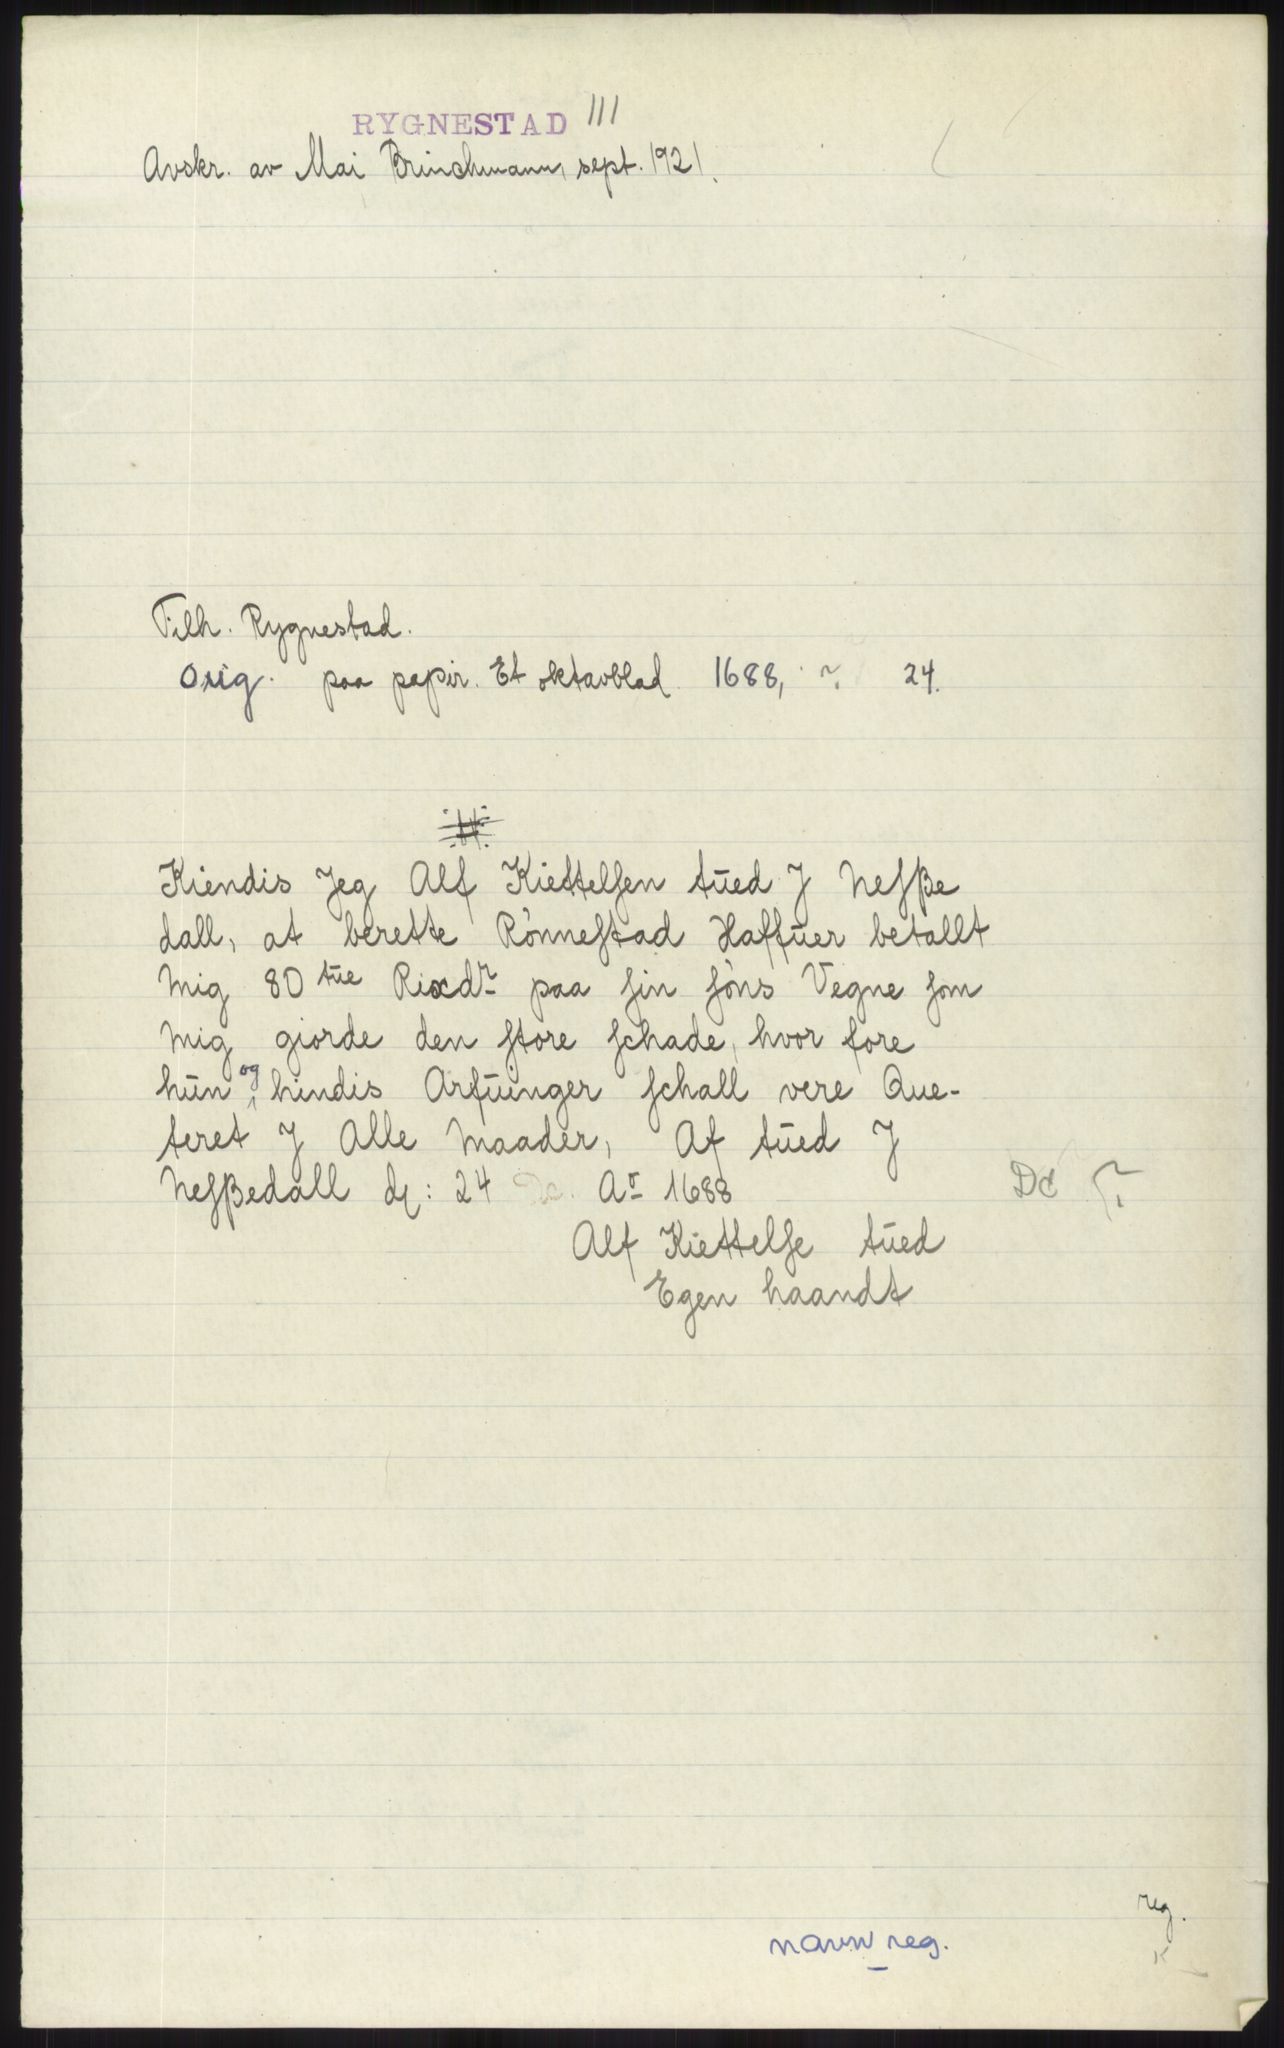 RYGNESTAD 111
Avskr. av Mai Brinchmann, sept. 1921.
Tilh. Rygnestad.
Orig. paa papir. Et oktavblad 1688, ? 24.
Kiendis Jeg Alf Kiettelſen tŭed J Neſße
dall, at berette Rönneſtad Haffŭer betallt
Mig 80 tŭe Rixdr paa ſin ſöns Vegne ſom
Mig giorde den ſtore ſchade, hvor fore
hŭn og hindis Arfŭinger ſchall vere Que-
teret J Alle Maader, Af tŭed J
Neſßedall d: 24 Dc. Ao 1688 Dc ?
Alf Kiettelſe tŭed
Egen haandt
reg.
navn reg.